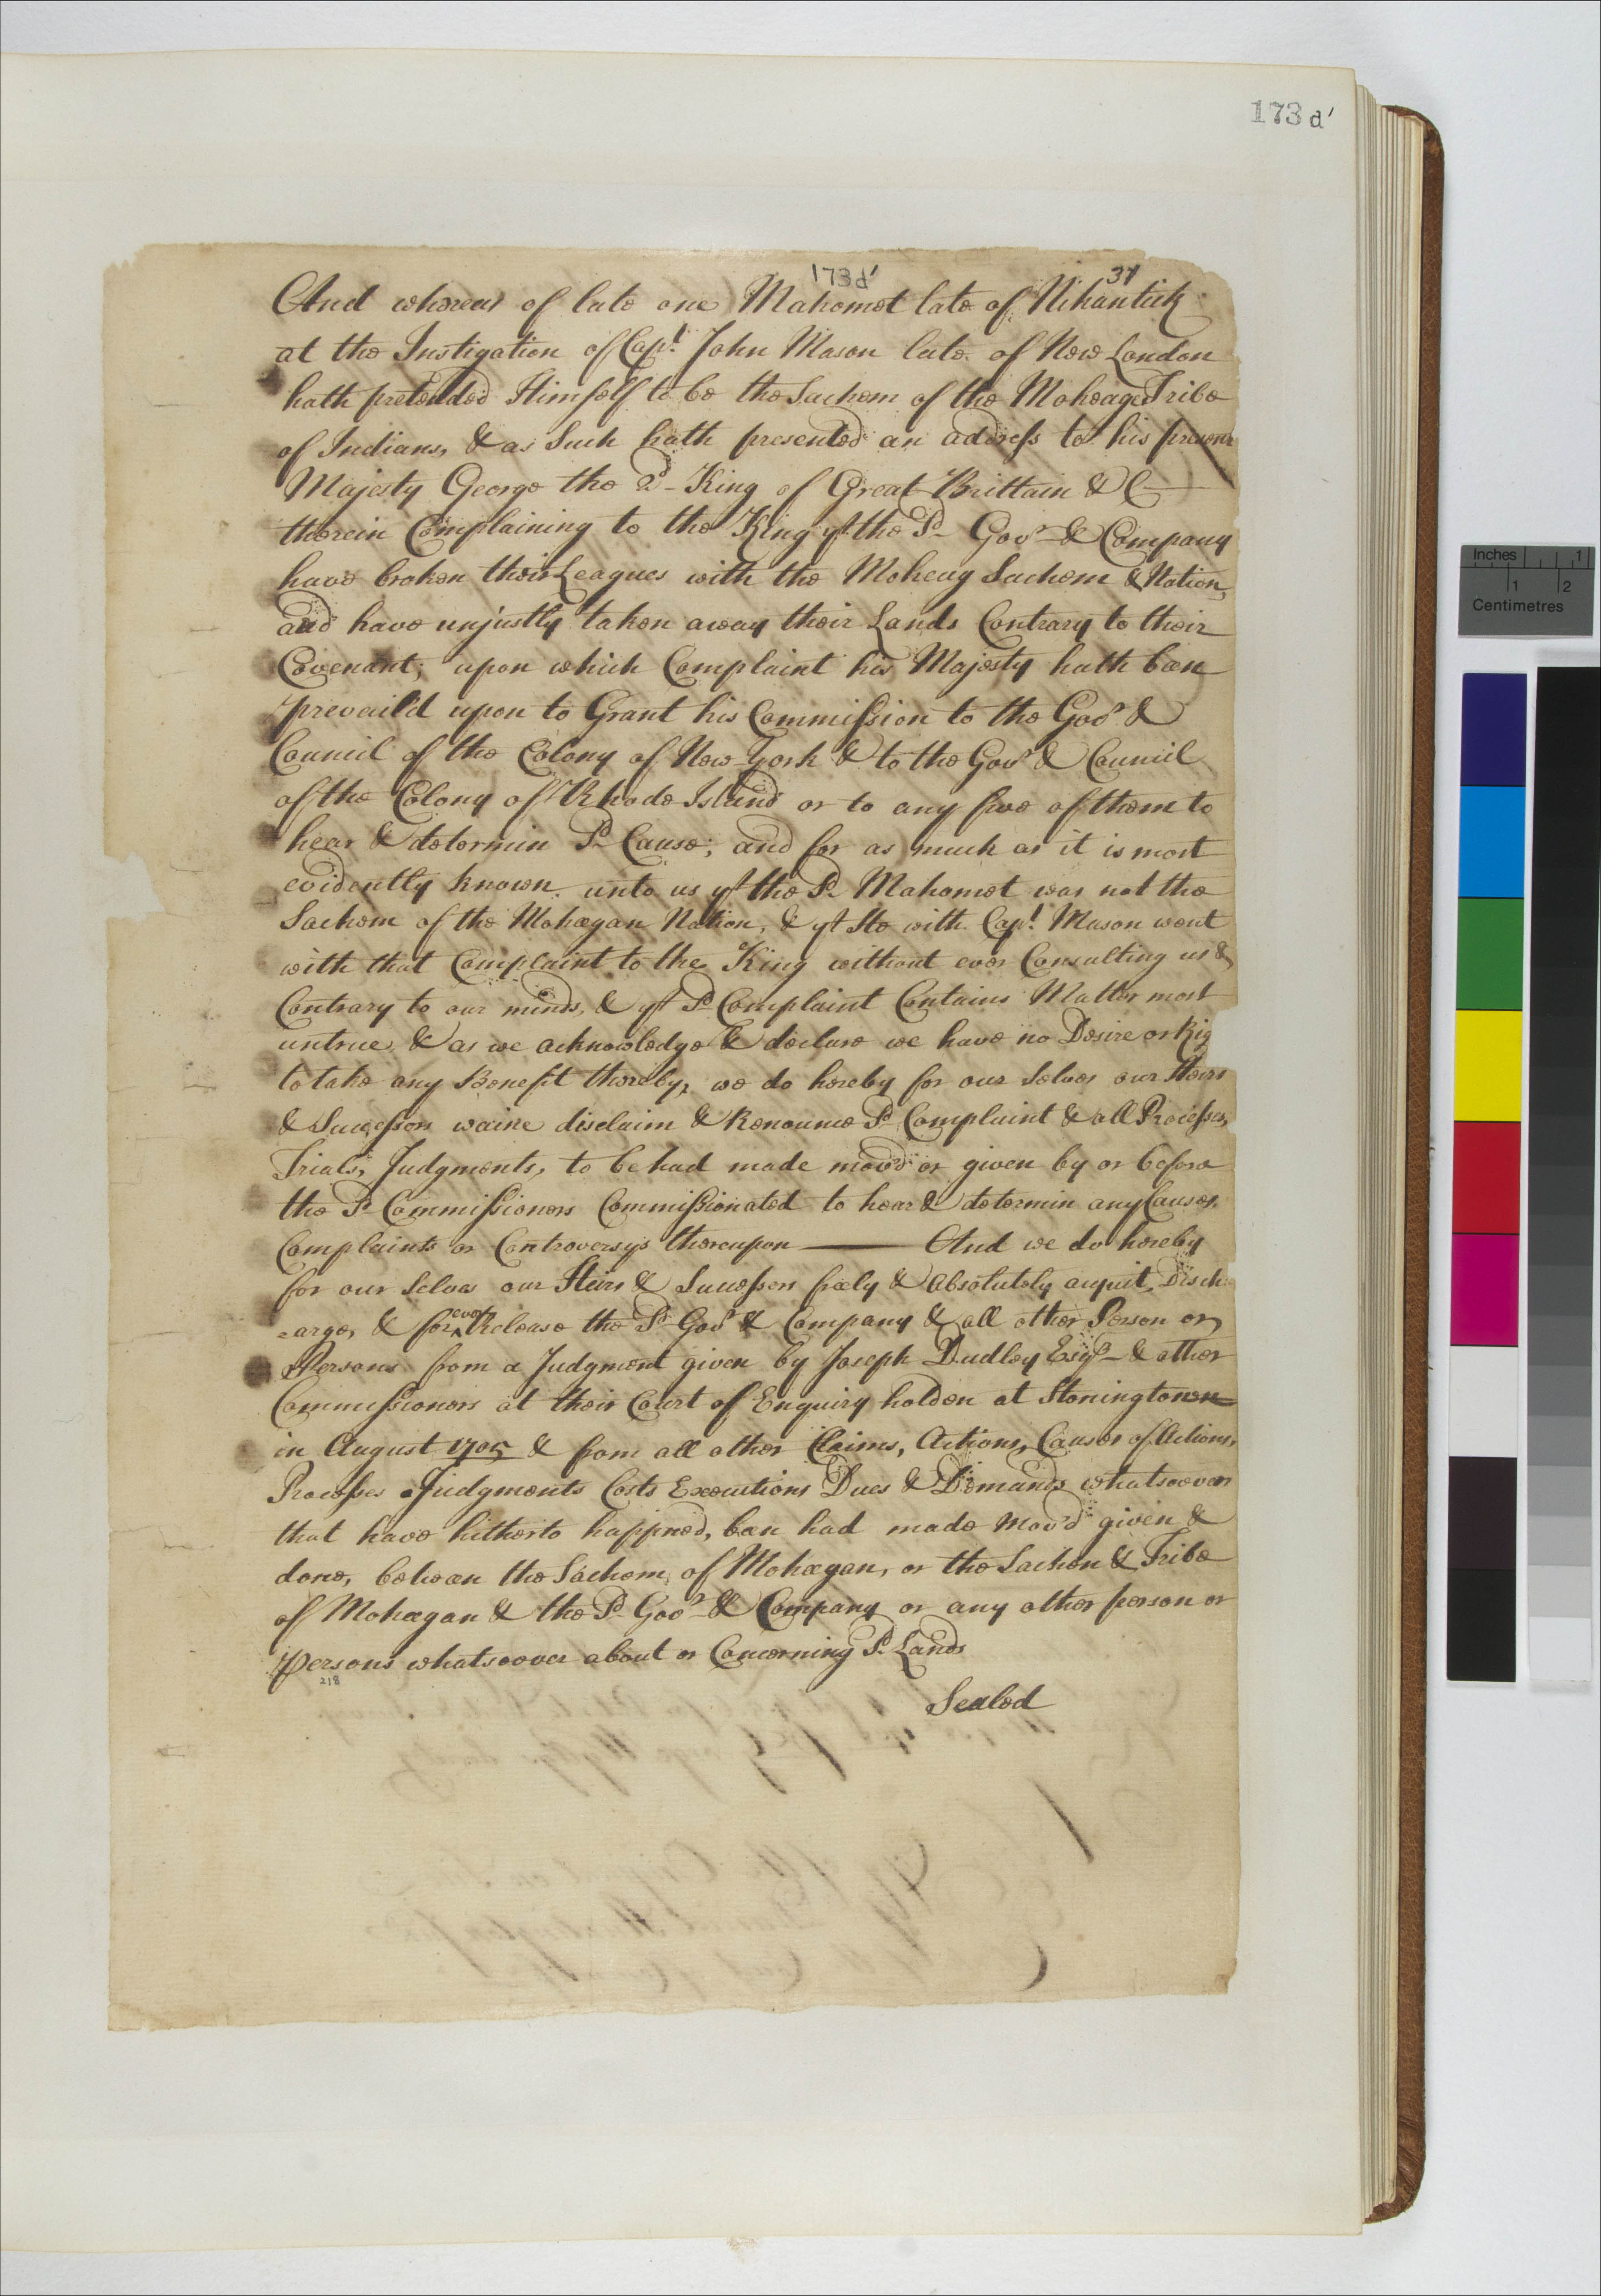 173 d'
173d'
37
And whereas of late one Mahomet late of Nihantick
at the Instigation of Capt. John Mason late of New London
hath pretended Himself to be the Sachem of the Moheagen Tribe
of Indians, & as Such hath presented an address to his present
Majesty George the 2d King of Great Brittain & C
therein Complaining to the King yt the Sd Govr & Company
have broken their Leagues with the Moheug Sachem & Nation,
and have unjustly taken away their Lands Contrary to their
Covenant; upon which Complaint his Majesty hath been
prevaild upon to Grant his Commission to the Govr &
Council of the Colony of New York & to the Govr & Council
of the Colony of Rhode Island or to any five of them to
hear & determin Sd Cause; and for as much as it is most
evidently known unto us yt the Sd Mahomet was not the
Sachem of the Mohegan Nation, & yt He with Capt. Mason went
with that Complaint to the King without ever Consulting us &
Contrary to our minds, & yt Sd Complaint Contains Matter most
untrue & as we acknowledge & declare we have no Desire or Rig
to take any Benefit thereby, we do hereby for our Selves our Heirs
& Successors waive disclaim & Renounce Sd Complaint & all Processes,
Trials, Judgments, to be had made mov'd or given by or before
the Sd Commissioners Commissionated to hear & determin any Causes,
Complaints or Controversys thereupon — And we do hereby
for our Selves our Heirs & Successors freely & Absolutely acquit, Disch
=arge, & forever Release the Sd Govr & Company & all other Person or
Persons from a Judgment given by Joseph Dudley Esqr & other
Commissioners at their Court of Enquiry holden at Stoningtown
in August 1705 & from all other Claims, Actions, Causes of Actions,
Processes Judgments Costs Executions Dues & Demands whatsoever
that have hitherto happned, been had made mov'd given &
done, between the Sachem of Mohegan, or the Sachem & Tribe
of Mohegan & the Sd Govr & Company or any other person or
persons whatsoever about or Concerning Sd Lands
218
Sealed
Inches 1
1 2
Centimetres